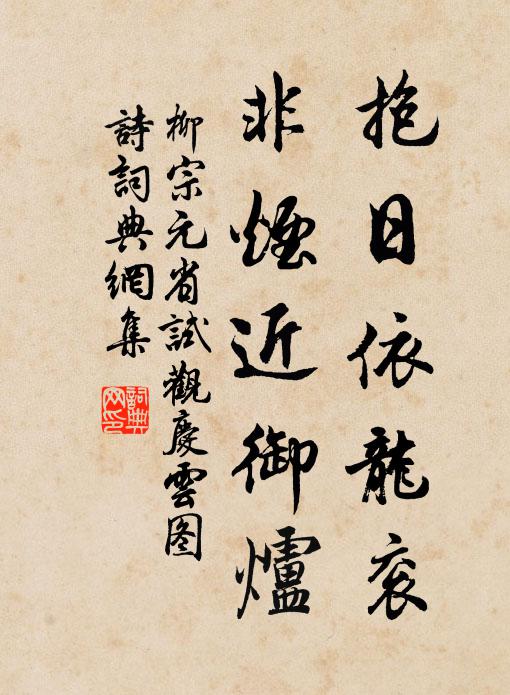 抱日依龍衮
非煙近御爐
柳宗元省試觀慶雲图
詩詞典網集
詞典网印